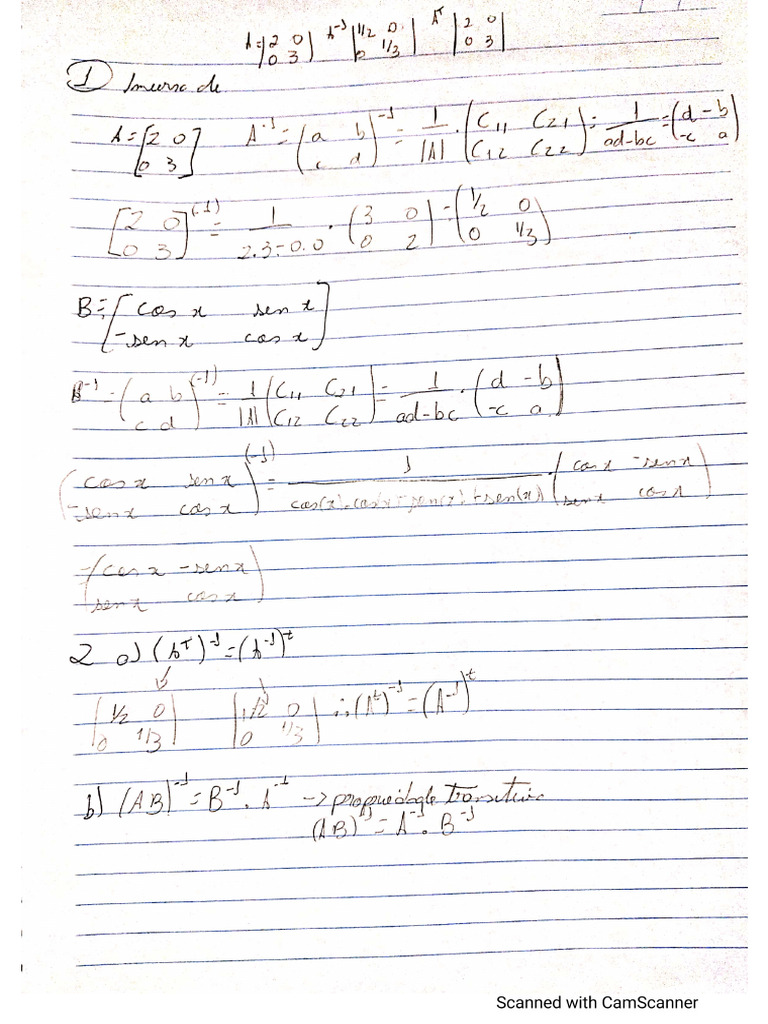 A = |2 0 / 0 3| A⁻¹ |1/2 0 / 0 1/3| Aᵀ |2 0 / 0 3|
① Inversa de
A = [2 0 / 0 3] A⁻¹ = (a b / c d)⁻¹ = 1/|A| · (C₁₁ C₂₁ / C₁₂ C₂₂) = 1/ad-bc = (d -b / -c a)
[2 0 / 0 3]⁽⁻¹⁾ = 1/2.3-0.0 · (3 0 / 0 2) = (1/2 0 / 0 1/3)
B = [cos x sen x / -sen x cos x]
B⁻¹ = (a b / c d)⁽⁻¹⁾ = 1/|A| (C₁₁ C₂₁ / C₁₂ C₂₂) = 1/ad-bc · (d -b / -c a)
(cos x sen x / -sen x cos x)⁽⁻¹⁾ = 1/cos(x).cos(x) sen(x) sen(x) · (cos x -sen x / sen x cos x)
= (cos x -sen x / sen x cos x)
2 a) (Aᵀ)⁻¹ = (A⁻¹)ᵗ
(1/2 0 / 0 1/3) (1/2 0 / 0 1/3) ∴ (Aᵗ)⁻¹ = (A⁻¹)ᵗ
b) (AB)⁻¹ = B⁻¹ . A⁻¹ -> propriedade
(AB)⁻¹ = A⁻¹ . B⁻¹
Scanned with CamScanner